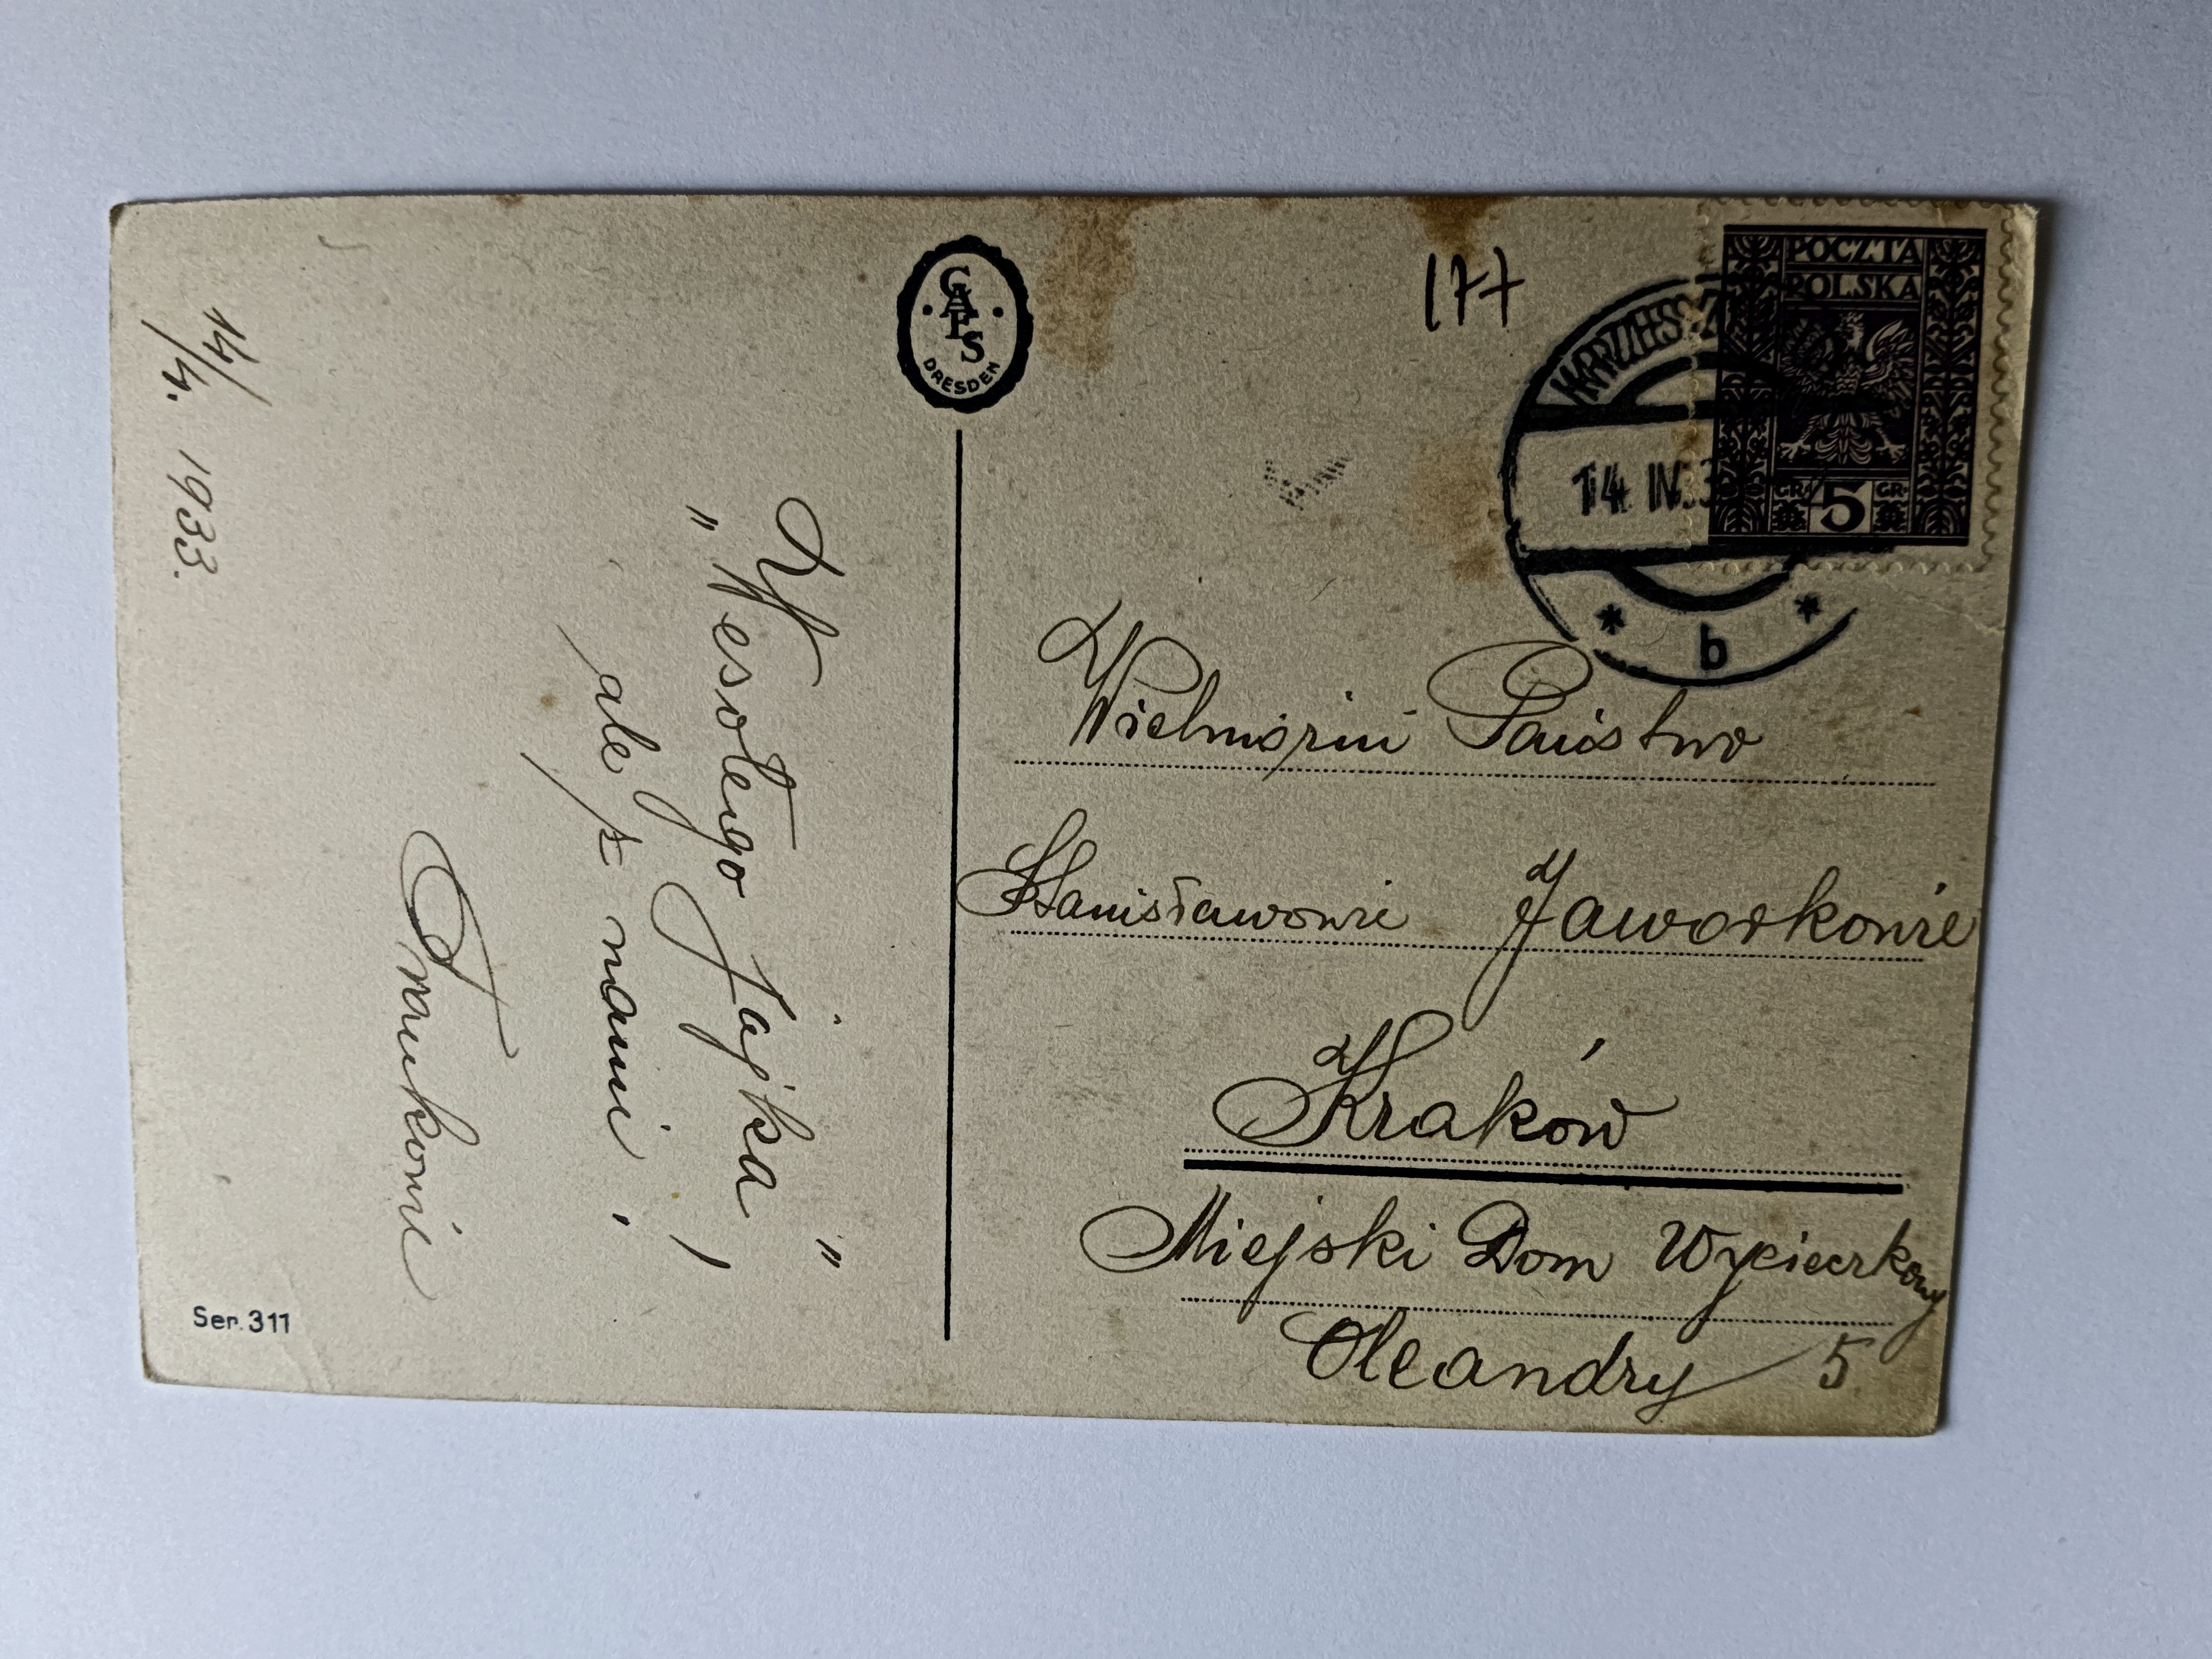 14/4. 1933.
„Wesołego Jajka"
ale z nami!
Frankowie
Ser. 311
GAFS
DRESDEN
177
POCZTA
POLSKA
GR. 5 GR.
14 IV.3
b
Wielmożni Państwo
Stanisławowie Jaworkowie
Kraków
Miejski Dom Wycieczkowy
Oleandry 5